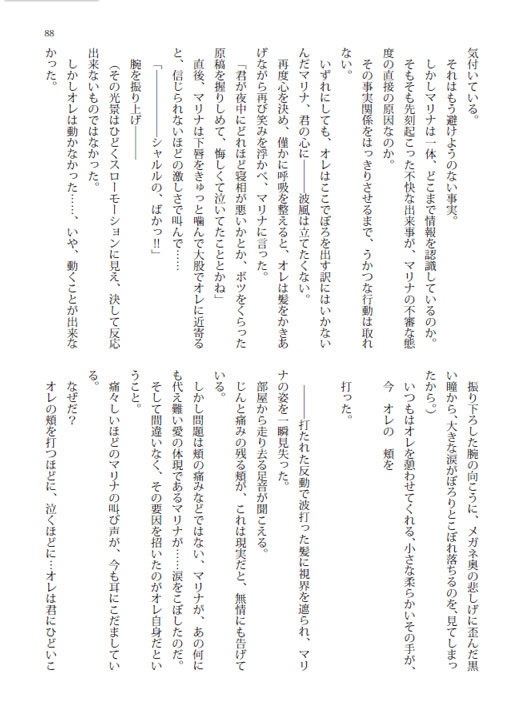 88
気付いている。
それはもう避けようのない事実。
しかしマリナは一体、どこまで情報を認識しているのか。
そもそも先刻起こった不快な出来事が、マリナの不審な態
度の直接の原因なのか。
その事実関係をはっきりさせるまで、うかつな行動は取れ
ない。
いずれにしても、オレはここでぼろを出す訳にはいかない
んだマリナ、君の心に――波風は立てたくない。
再度心を決め、僅かに呼吸を整えると、オレは髪をかきあ
げながら再び笑みを浮かべ、マリナに言った。
「君が夜中にどれほど寝相が悪いかとか、ボツをくらった
原稿を握りしめて、悔しくて泣いてたこととかね」
直後、マリナは下唇をきゅっと噛んで大股でオレに近寄る
と、信じられないほどの激しさで叫んで……
「――――――シャルルの、ばかっ!!」
腕を振り上げ――
(その光景はひどくスローモーションに見え、決して反応
出来ないものではなかった。
しかしオレは動かなかった……、いや、動くことが出来な
かった。
振り下ろした腕の向こうに、メガネ奥の悲しげに歪んだ黒
い瞳から、大きな涙がぽろりとこぼれ落ちるのを、見てしまっ
たから。)
いつもはオレを憩わせてくれる、小さな柔らかいその手が、
今　オレの　頬を
打った。
――――打たれた反動で波打った髪に視界を遮られ、マリ
ナの姿を一瞬見失った。
部屋から走り去る足音が聞こえる。
じんと痛みの残る頬が、これは現実だと、無情にも告げて
いる。
しかし問題は頬の痛みなどではない、マリナが、あの何に
も代え難い愛の体現であるマリナが……涙をこぼしたのだ。
そして間違いなく、その要因を招いたのがオレ自身だとい
うこと。
痛々しいほどのマリナの叫び声が、今も耳にこだましてい
る。
なぜだ？
オレの頬を打つほどに、泣くほどに…オレは君にひどいこ